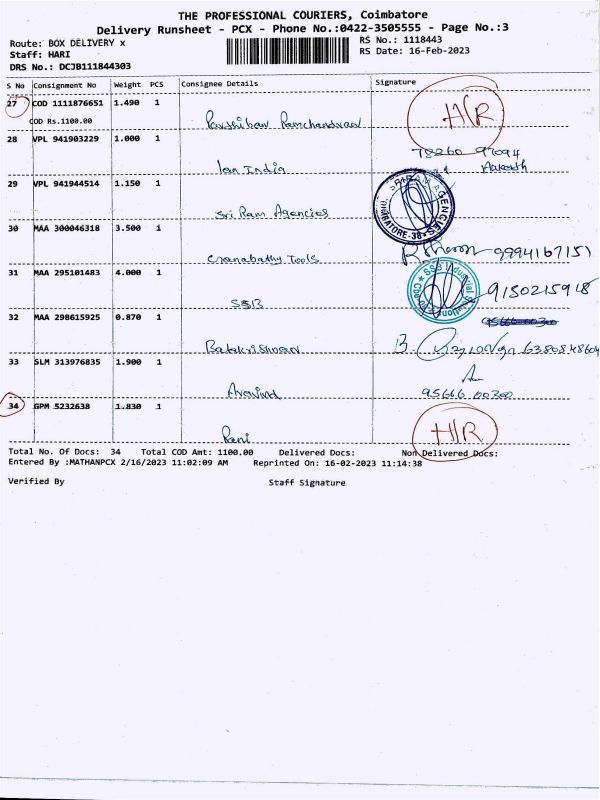 THE PROFESSIONAL COURIERS, Coimbatore
Delivery Runsheet - PCX - Phone No.:0422-3505555 - Page No.:3
Route: BOX DELIVERY x
RS No.: 1118443
Staff: HARI
RS Date: 16-Feb-2023
DRS No.: DCJB111844303
S No Consignment No Weight PCS Consignee Details Signature
27 COD 1111876651 1.490 1 H/R
COD Rs.1100.00
Ramchandran
28 VPL 941903229 1.000 1 78260 97094
Ian India Aakash
29 VPL 941944514 1.150 1
Sri Ram Agencies
AGENCIES
30 MAA 300046318 3.500 1
Tools 9994167151
31 MAA 295101483 4.000 1 9150215918
SSB
SSB Industrial
32 MAA 298615925 0.870 1
Balakrishnan B. 6380848604
33 SLM 313976835 1.900 1
Aravind 95666 00300
34 GPM 5232638 1.830 1 H/R
Rani
Total No. Of Docs: 34 Total COD Amt: 1100.00 Delivered Docs: Non Delivered Docs:
Entered By :MATHANPCX 2/16/2023 11:02:09 AM Reprinted On: 16-02-2023 11:14:38
Verified By Staff Signature